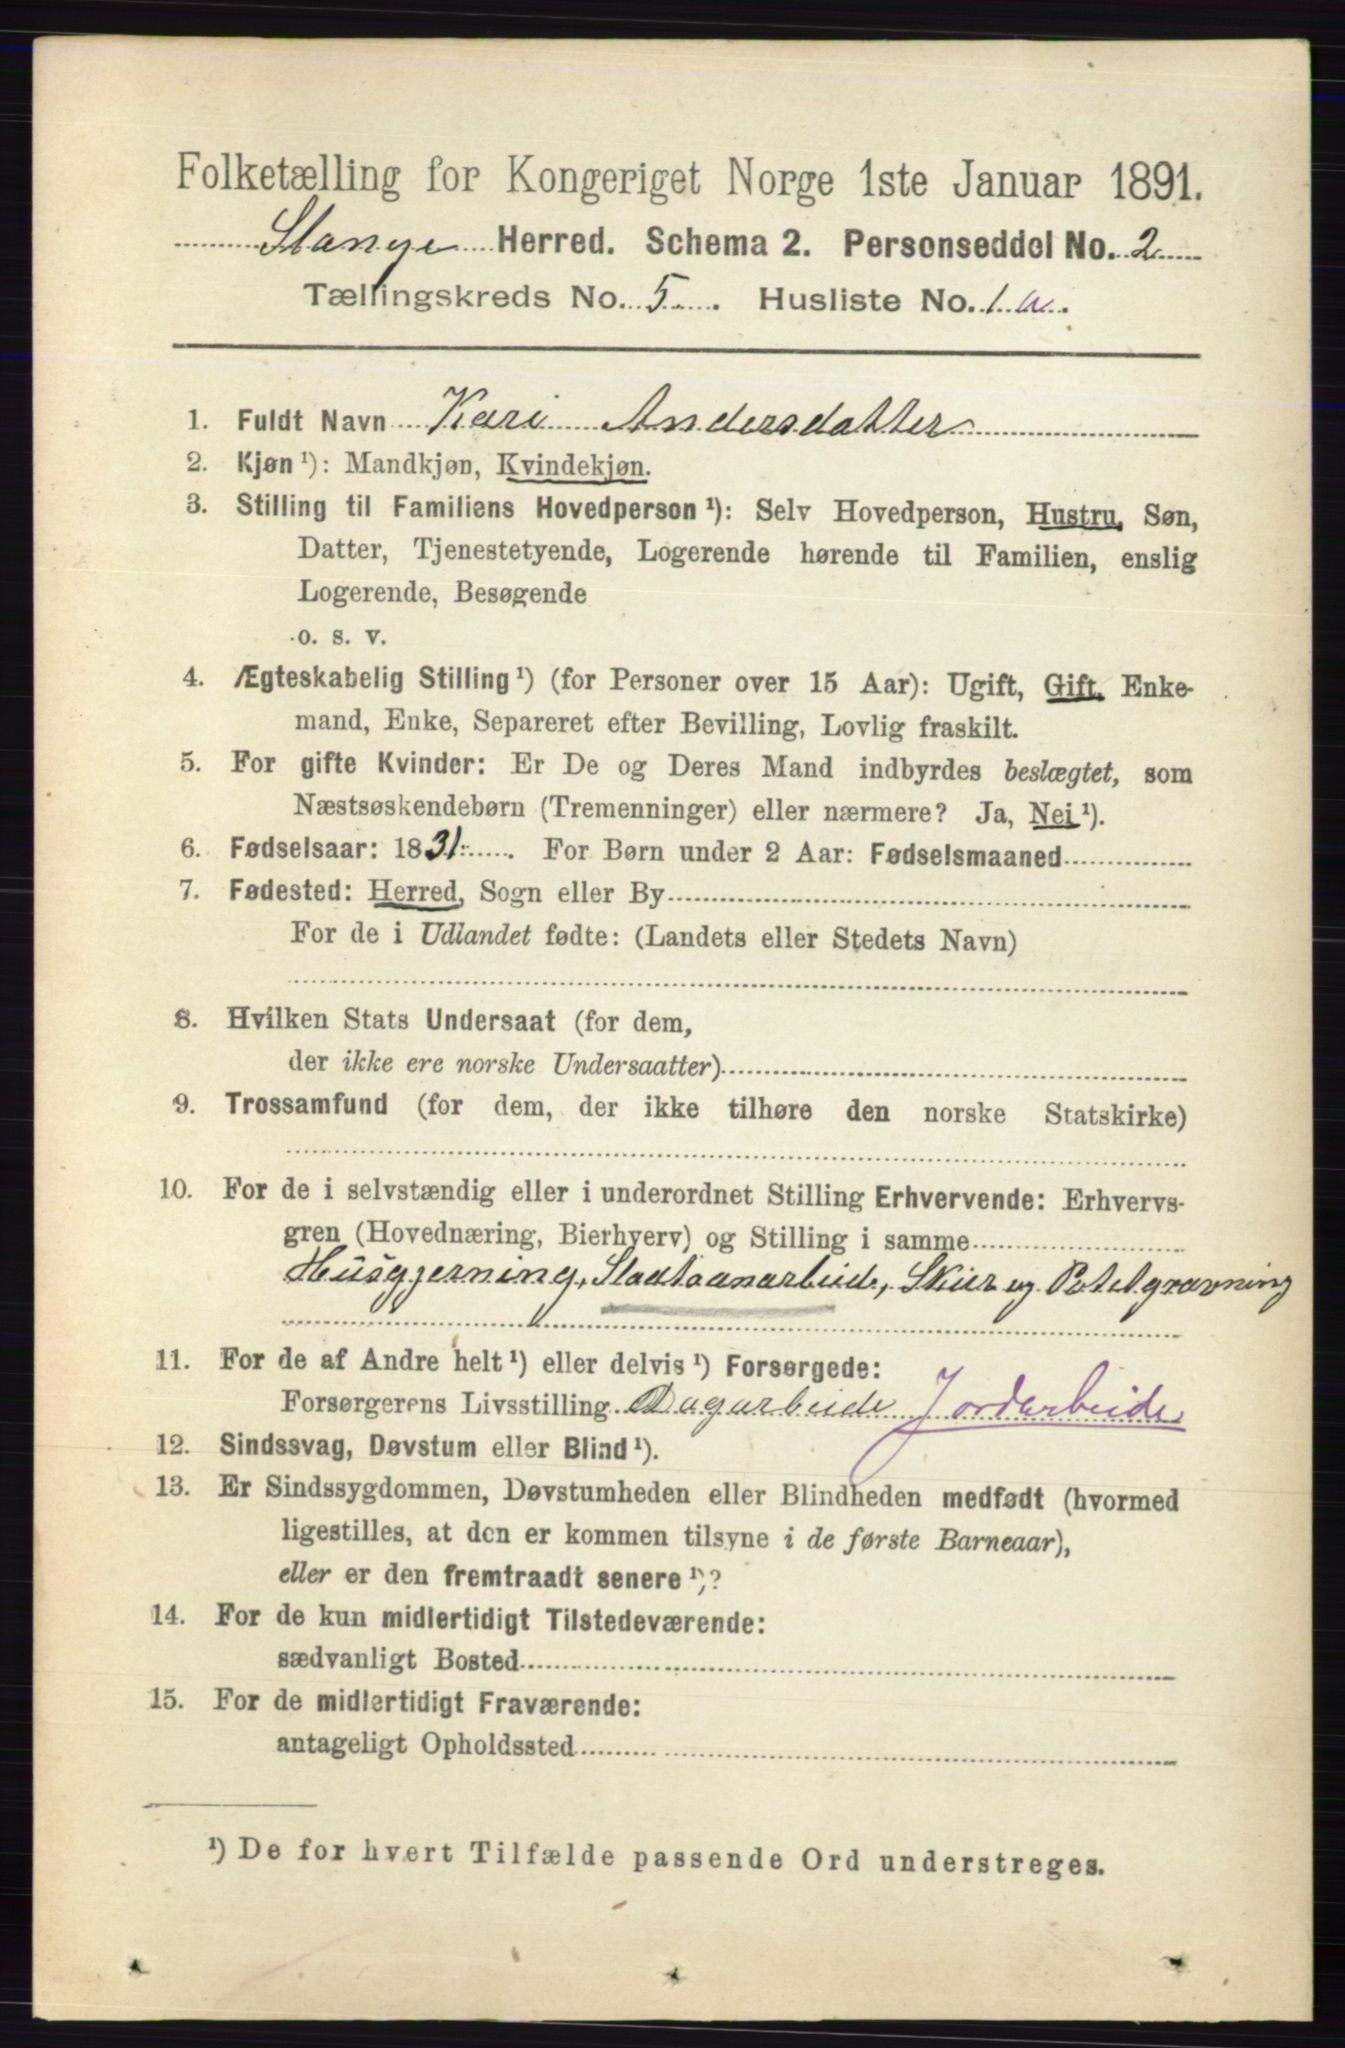 Folketælling for Kongeriget Norge 1ste Januar 1891.
Stange Herred. Schema 2. Personseddel No. 2
Tællingskreds No. 5. Husliste No. 1 a.
1. Fuldt Navn Kari Andersdatter
2. Kjøn ¹): Mandkjøn, Kvindekjøn.
3. Stilling til Familiens Hovedperson ¹): Selv Hovedperson, Hustru, Søn,
Datter, Tjenestetyende, Logerende hørende til Familien, enslig
Logerende, Besøgende
o. s. v.
4. Ægteskabelig Stilling ¹) (for Personer over 15 Aar): Ugift, Gift, Enke-
mand, Enke, Separeret efter Bevilling, Lovlig fraskilt.
5. For gifte Kvinder: Er De og Deres Mand indbyrdes beslægtet, som
Næstsøskendebørn (Tremenninger) eller nærmere? Ja, Nei ¹).
6. Fødselsaar: 1831. For Børn under 2 Aar: Fødselsmaaned
7. Fødested: Herred, Sogn eller By
For de i Udlandet fødte: (Landets eller Stedets Navn)
8. Hvilken Stats Undersaat (for dem,
der ikke ere norske Undersaatter)
9. Trossamfund (for dem, der ikke tilhøre den norske Statskirke)
10. For de i selvstændig eller i underordnet Stilling Erhvervende: Erhvervs-
gren (Hovednæring, Bierhverv) og Stilling i samme
Husgjerning, Slaataanarbeide, Skur og Potetgravning
11. For de af Andre helt ¹) eller delvis ¹) Forsørgede:
Forsørgerens Livsstilling Dagarbeide Jordarbeide
12. Sindssvag, Døvstum eller Blind ¹).
13. Er Sindssygdommen, Døvstumheden eller Blindheden medfødt (hvormed
ligestilles, at den er kommen tilsyne i de første Barneaar),
eller er den fremtraadt senere ¹)?
14. For de kun midlertidigt Tilstedeværende:
sædvanligt Bosted
15. For de midlertidigt Fraværende:
antageligt Opholdssted
¹) De for hvert Tilfælde passende Ord understreges.